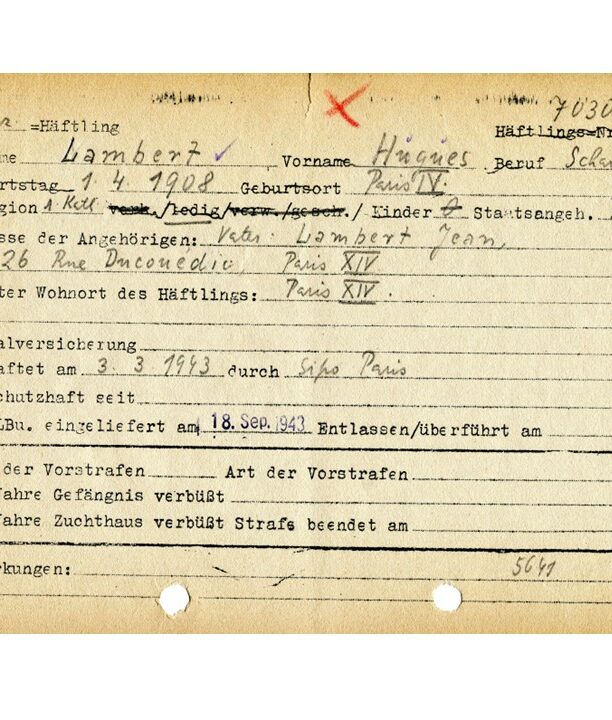 =Häftling
7030
Häftlings=Nr
me Lambert Vorname Hugues Beruf Schau
rtstag 1.4.1908 Geburtsort Paris IV.
gion R. Kath verh./ledig/verw./gesch./ Kinder 0 Staatsangeh.
sse der Angehörigen: Vater: Lambert Jean,
26 Rue Ducouëdic, Paris XIV
ter Wohnort des Häftlings: Paris XIV.
alversicherung
aftet am 3.3.1943 durch Sipo Paris
chutzhaft seit
LBu. eingeliefert am 18. Sep. 1943 Entlassen/überführt am
der Vorstrafen Art der Vorstrafen
Jahre Gefängnis verbüßt
Jahre Zuchthaus verbüßt Strafe beendet am
rkungen: 5641